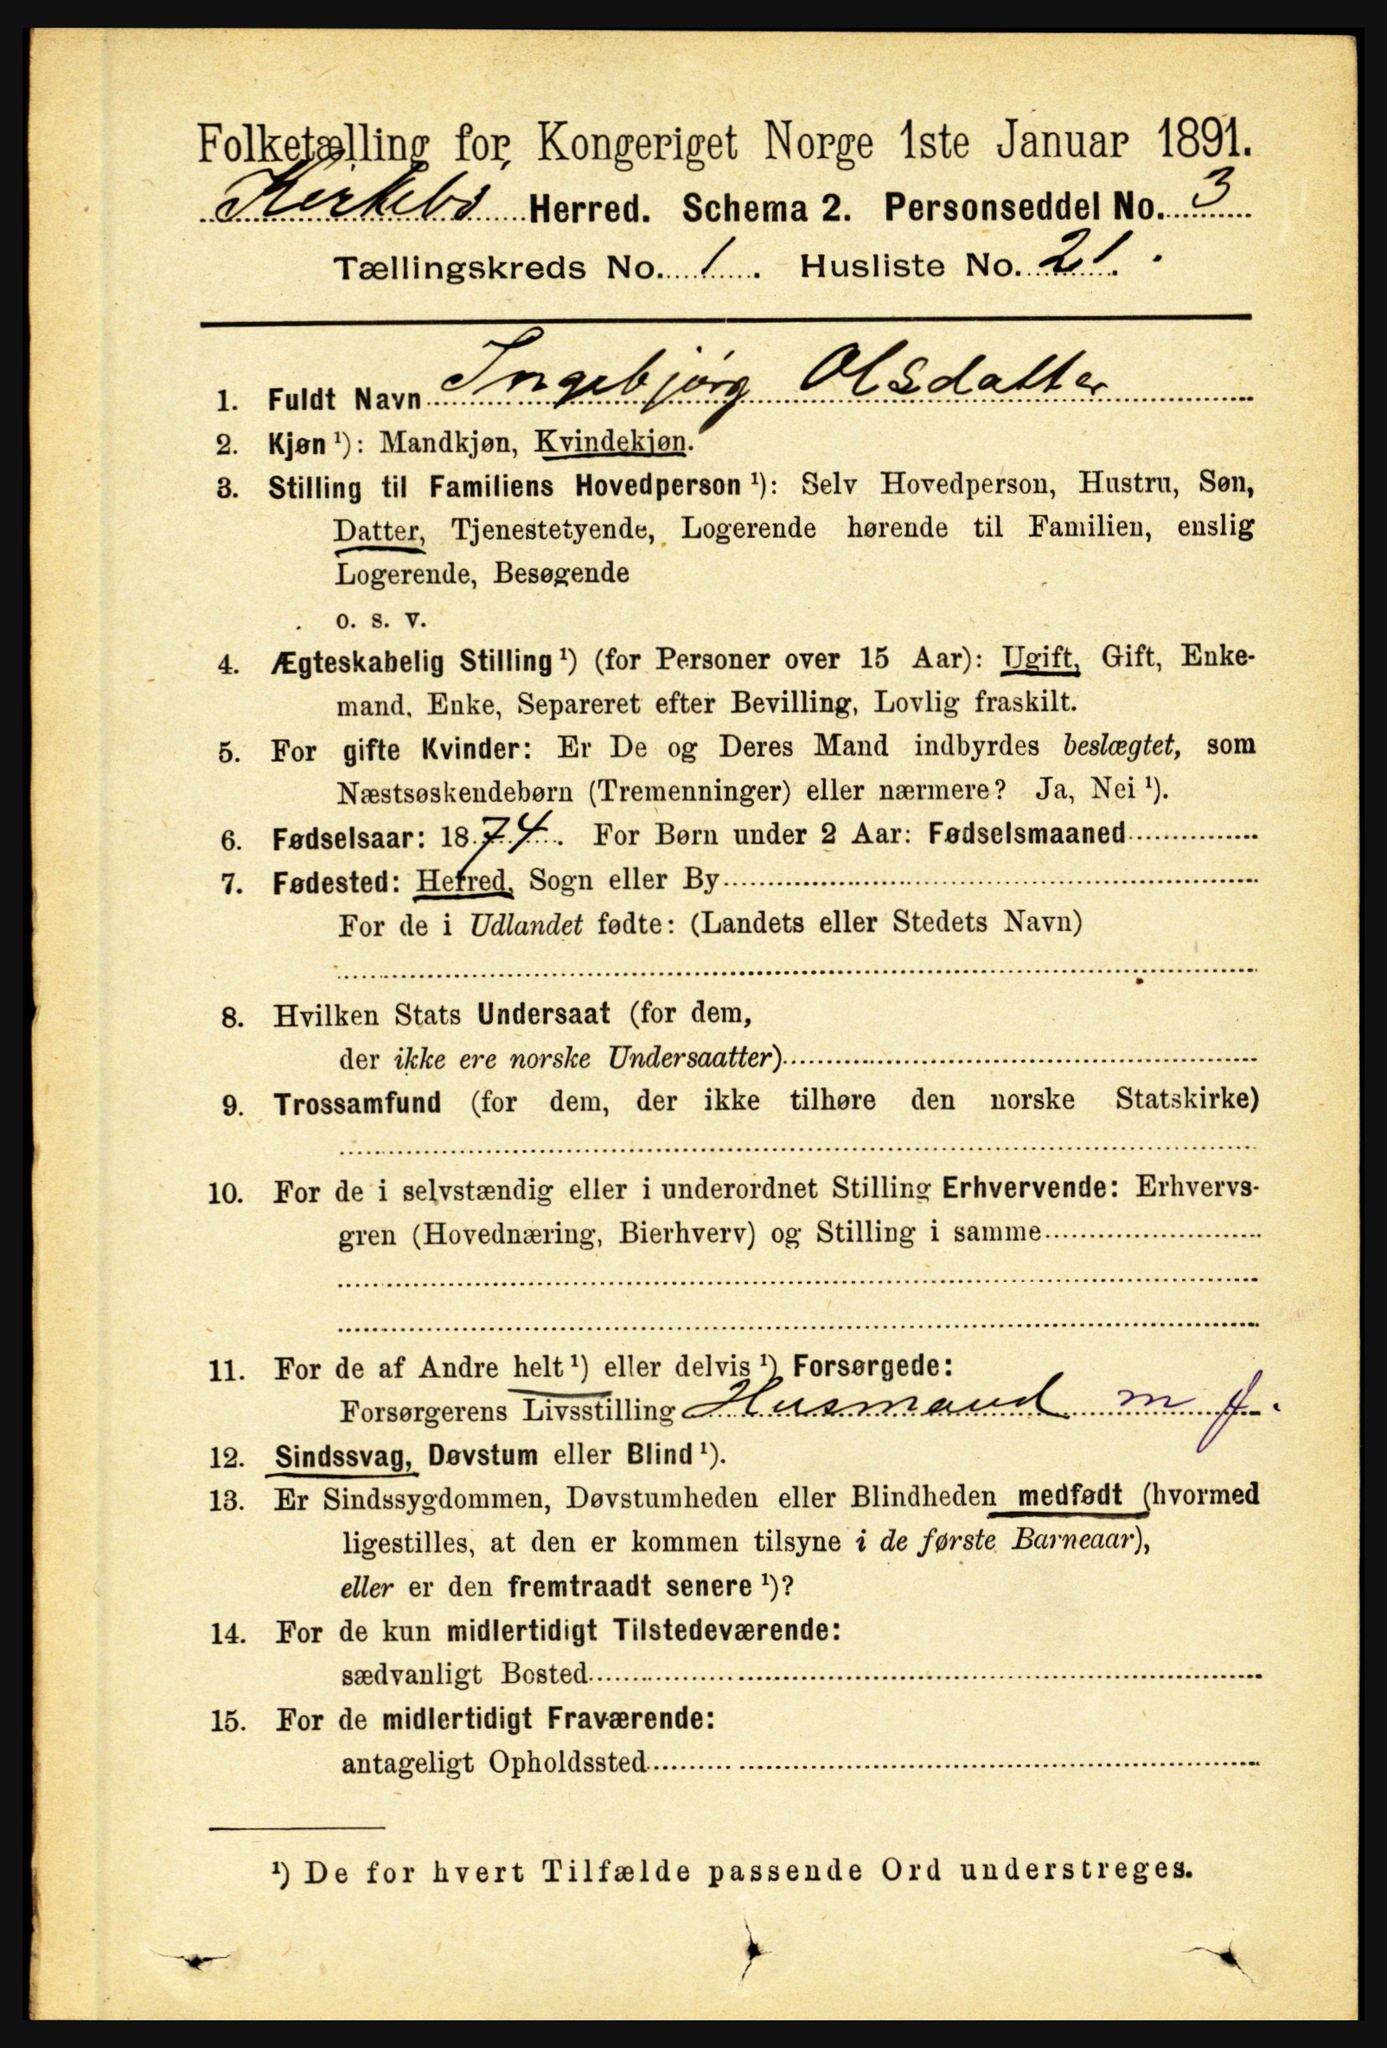 Folketælling for Kongeriget Norge 1ste Januar 1891.
Kirkebø Herred. Schema 2. Personseddel No. 3
Tællingskreds No. 1. Husliste No. 21.
1. Fuldt Navn Ingebjørg Olsdatter
2. Kjøn ¹): Mandkjøn, Kvindekjøn.
3. Stilling til Familiens Hovedperson ¹): Selv Hovedperson, Hustru, Søn,
Datter, Tjenestetyende, Logerende hørende til Familien, enslig
Logerende, Besøgende
o. s. v.
4. Ægteskabelig Stilling ¹) (for Personer over 15 Aar): Ugift, Gift, Enke-
mand, Enke, Separeret efter Bevilling, Lovlig fraskilt.
5. For gifte Kvinder: Er De og Deres Mand indbyrdes beslægtet, som
Næstsøskendebørn (Tremenninger) eller nærmere? Ja, Nei ¹).
6. Fødselsaar: 1874. For Børn under 2 Aar: Fødselsmaaned
7. Fødested: Herred, Sogn eller By
For de i Udlandet fødte: (Landets eller Stedets Navn)
8. Hvilken Stats Undersaat (for dem,
der ikke ere norske Undersaatter)
9. Trossamfund (for dem, der ikke tilhøre den norske Statskirke)
10. For de i selvstændig eller i underordnet Stilling Erhvervende: Erhvervs-
gren (Hovednæring, Bierhverv) og Stilling i samme
11. For de af Andre helt ¹) eller delvis ¹) Forsørgede:
Forsørgerens Livsstilling Husmand m j.
12. Sindssvag, Døvstum eller Blind ¹).
13. Er Sindssygdommen, Døvstumheden eller Blindheden medfødt (hvormed
ligestilles, at den er kommen tilsyne i de første Barneaar),
eller er den fremtraadt senere ¹)?
14. For de kun midlertidigt Tilstedeværende:
sædvanligt Bosted
15. For de midlertidigt Fraværende:
antageligt Opholdssted
¹) De for hvert Tilfælde passende Ord understreges.